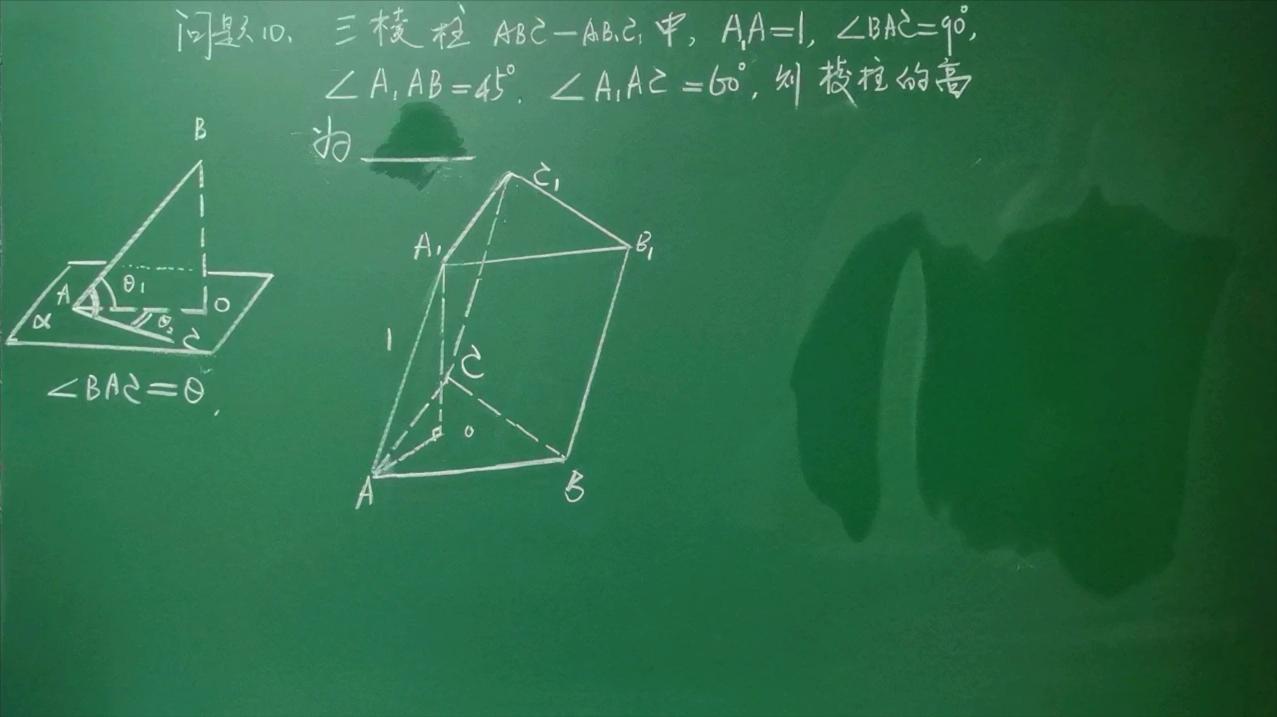 问题10. 三棱柱 ABC-A₁B₁C₁中, A₁A=1, ∠BAC=90°,
∠A₁AB=45°. ∠A₁AC=60°, 则棱柱的高
为
B
A
θ₁
O
α
θ₂
C
∠BAC=θ.
C₁
A₁
B₁
1
C
O
A
B